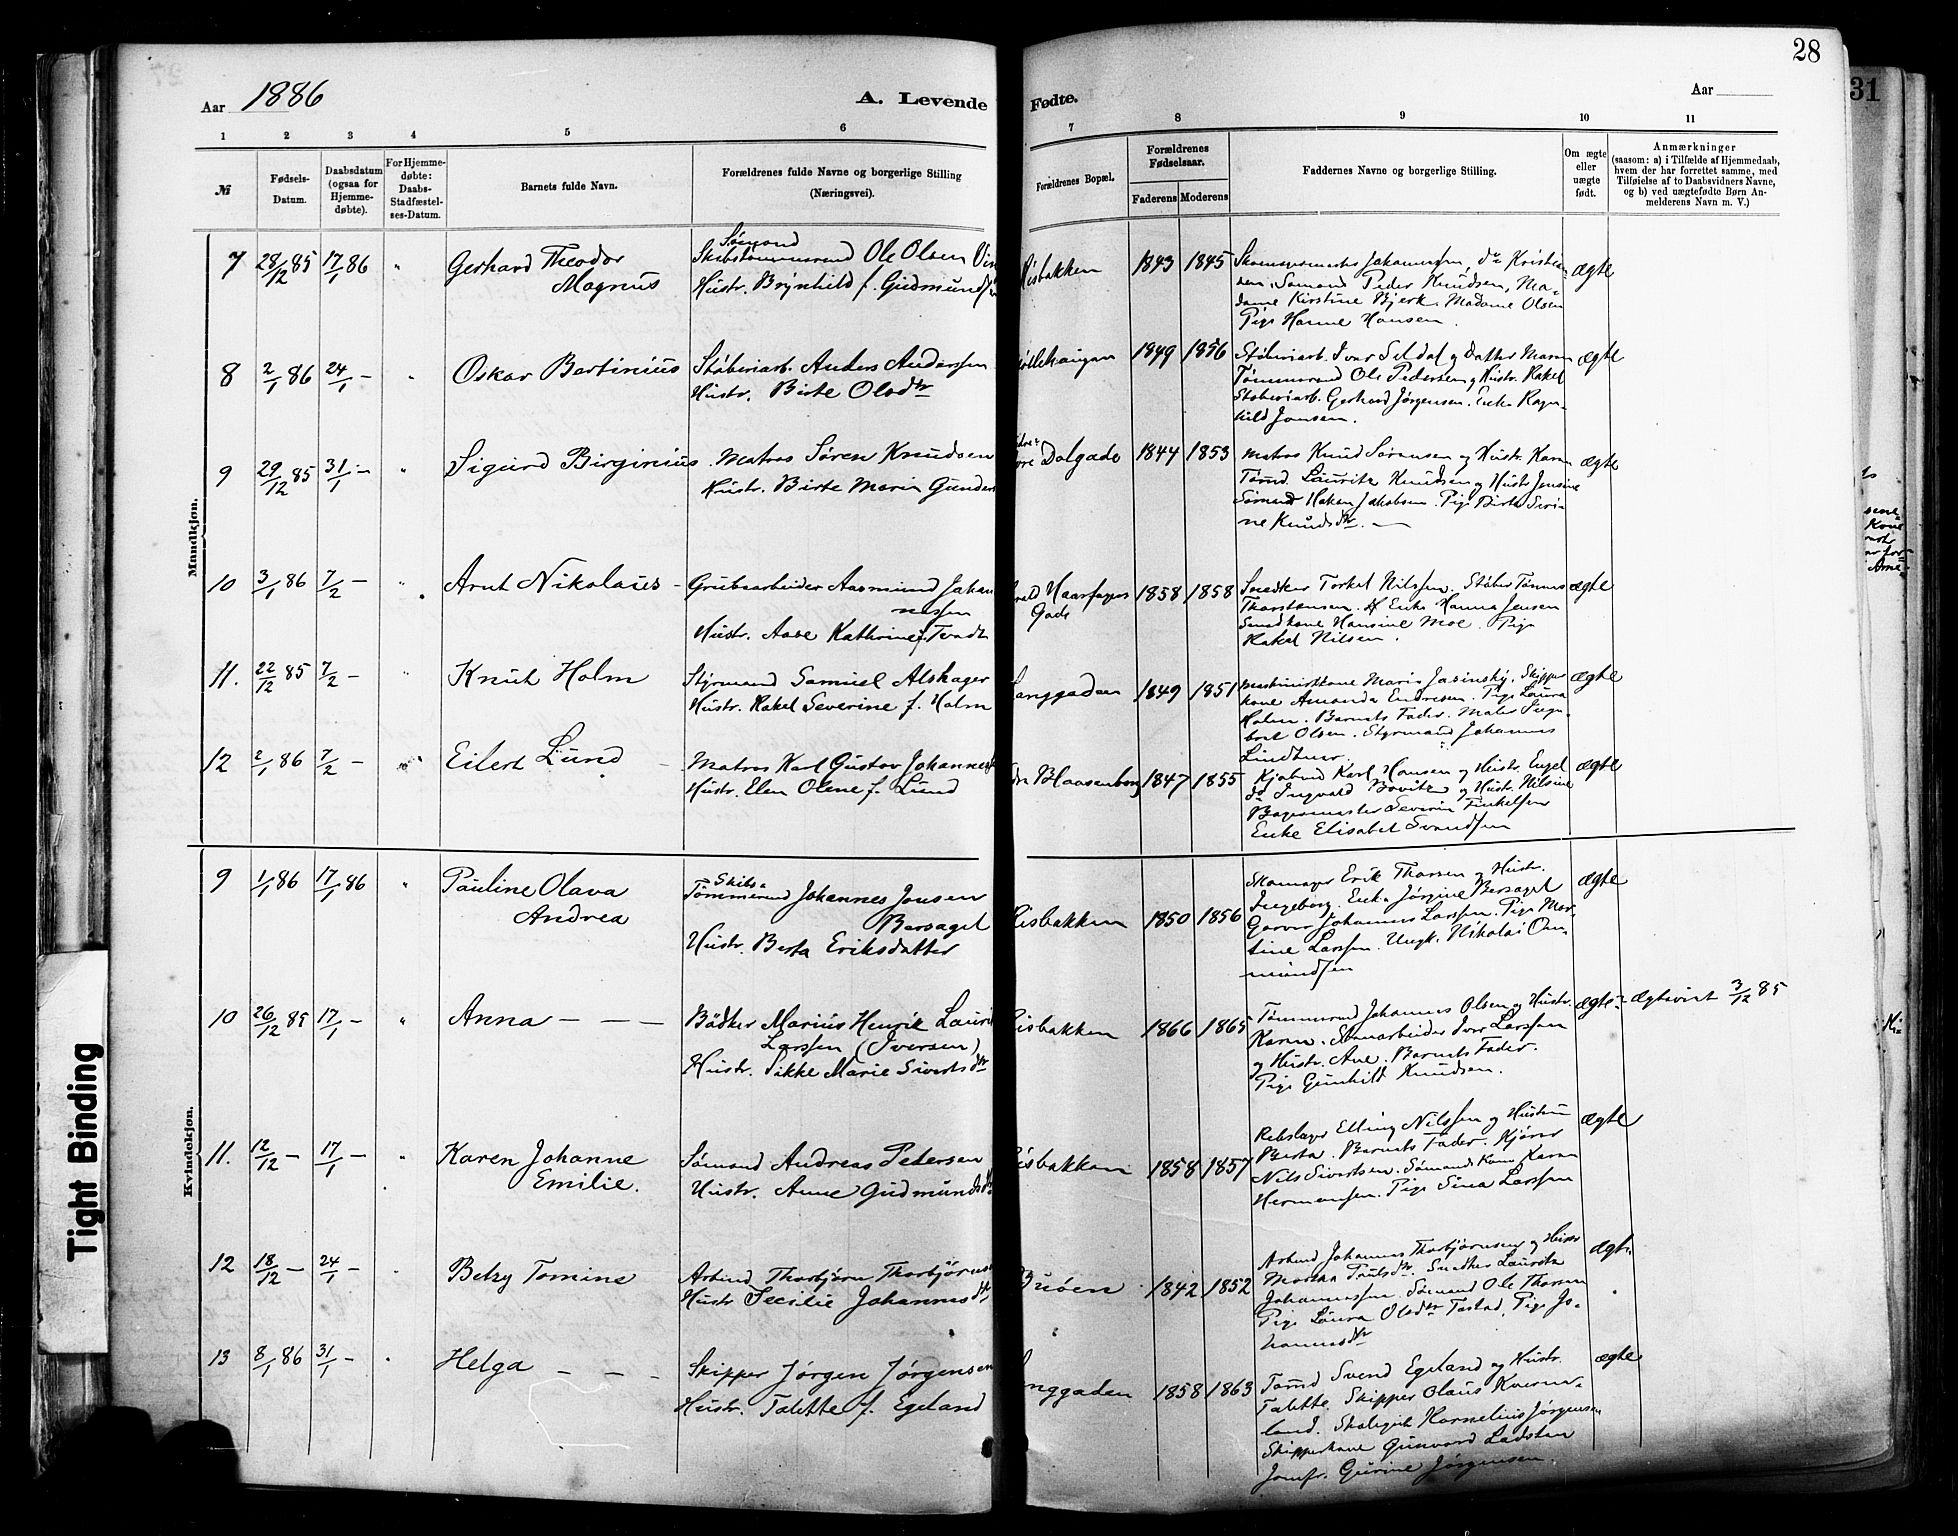 28
31
Aar 1886
A. Levende
Fødte.
Aar
1 2 3 4 5 6 7 8 9 10 11
№
Fødsels-
Datum.
Daabsdatum
(ogsaa for
Hjemme-
døbte).
For Hjemme-
døbte:
Daabs-
Stadfæstel-
ses-Datum.
Barnets fulde Navn.
Forældrenes fulde Navne og borgerlige Stilling
(Næringsvei).
Forældrenes Bopæl.
Forældrenes
Fødselsaar.
Faderens
Moderens
Faddernes Navne og borgerlige Stilling.
Om ægte
eller
uægte
født.
Anmærkninger
(saasom: a) i Tilfælde af Hjemmedaab,
hvem der har forrettet samme, med
Tilføielse af to Daabsvidners Navne,
og b) ved uægtefødte Børn An-
melderens Navn m. V.)
Mandkjøn.
7 28/12 85 17/1 86 " Gerhard Theodor
Magnus
Sømand
Ole Olsen
Hustr. Brynhild f. Gudmunds
Risbakken 1843 1845
Johannesen, do Kristian-
sen. Sømand Peder Knudsen, Ma-
dame Kirstine Bjerk. Madame Olsen
Pige Hanne Hansen.
ægte
8 2/1 86 24/1 - " Oskar Bertinius
Støberiarb. Anders Andersen
Hustr. Birte Olsdtr
1849 1856
Støberiarb. Ivar Seldal og Datter Maren
Tømmermd Ole Pedersen og Hustr. Rakel
Støberiarb. Gerhard Jørgensen. Enke Ragn-
hild Jonsen.
ægte
9 29/12 85 31/1 - " Sigurd Birginius
Matros Søren Knudsen
Hustr. Birte Maria Gunders
Dalgade 1844 1853
Matros Knud Sørensen og Hustr. Karen
Tømd. Lauritz Knudsen og Hustr Jensine
Sømand Haken Jakobsen. Pige Berta Seri-
ne Knudsdtr. —
ægte
10 3/1 86 7/2 - " Arnt Nikolaus -
Grubearbeider Aasmund Johan-
nessen
Hustr. Aase Kathrine f. Tvedt
Haarfagres
Gade
1858 1858
Snedker Torkel Nilssen. Støber Tønnes
Thorstensen. Enke Hanna Jensen
Smedkone Hansine Moe. Pige
Rakel Nilsen.
ægte
11. 22/12 85 7/2 - " Knut Holm
Styrmand Samuel Alshager
Hustr. Rakel Severine f. Holm
Langgaden 1849 1851
Maskinistkone Maria Jasinsky. Skipper
kone Amanda Endresen. Pige Laura
Holm. Barnets Fader. Maler Inge-
bret Olsen. Styrmand Johannes
Lindtner.
ægte
12 2/1 86 7/2 - Eilert Lund
Matros Karl Gustav Johannes
Hustr. Elen Olene f. Lund
Blaasenborg 1847 1855
Kjøbmd Karl Hansen og Hustr. Engel
do Ingvald Bovitz og Hustr. Nilsine
Bagermester Severin Finkelsen
Enke Elisabet Svendsen
ægte
Kvindekjøn.
9 1/1 86 17/1 86 " Pauline Olava
Andrea
Skibs-
Tømmermd Johannes Jonsen
Bersaget
Hustr. Berta Eriksdatter
Risbakken 1850 1856
Skomager Erik Thorsen og Hustr.
Ingeborg. Enke Jørgine Bersaget
Garver Johannes Larssen. Pige Mar-
tine Larssen. Ungk. Nikolai Om-
mundsen
ægte
10 26/12 85 17/1 - " Anna — — —
Bødker Marius Henrik Laurit
Larssen (Iversen)
Hustr. Sikke Marie Sivertsdtr
Risbakken 1866 1865
Tømmermd Johannes Olsen og Hustr.
Karen. Stenarbeider Ivar Larssen
og Hustr. Ane. Barnets Fader.
Pige Gunhild Knudsen.
ægte Ægteviet 3/12 85
11. 12/12 - 17/1 - " Karen Johanne
Emilie.
Sømand Andreas Pedersen
Hustr. Anne Gudmundsdtr
Risbakken 1858 1857
Rebslager Elling Nilssen og Hustru
Berta. Barnets Fader. Kjører
Nils Sivertsen. Sømands Kone Karen
Hermansen. Pige Sina Larssen
ægte
12 18/12 - 24/1 - Betzy Tomine
Arbmd Thorbjørn Thorbjørns
Hustr Secilie Johannesdtr
Buøen 1842 1852
Arbmd Johannes Thorbjørnsen og Hustr
Martha Paulsdtr. Snedker Lauritz
Johannessen. Sømand Ole Thorsen
Pige Laura Olsdtr Tastad, Pige Jo-
hannesdtr
ægte
13 8/1 86 31/1 - Helga — — —
Skipper Jørgen Jørgensen
Hustr. Talette f. Egeland
Langgaden 1858 1863
Tømd Svend Egeland og Hustr.
Talette. Skipper Olaus Kverne-
land. Kornelius Jørgensen
Skipperkone Gunvord Ladsten
Jomfr. Gurine Jørgensen.
ægte
Tight Binding